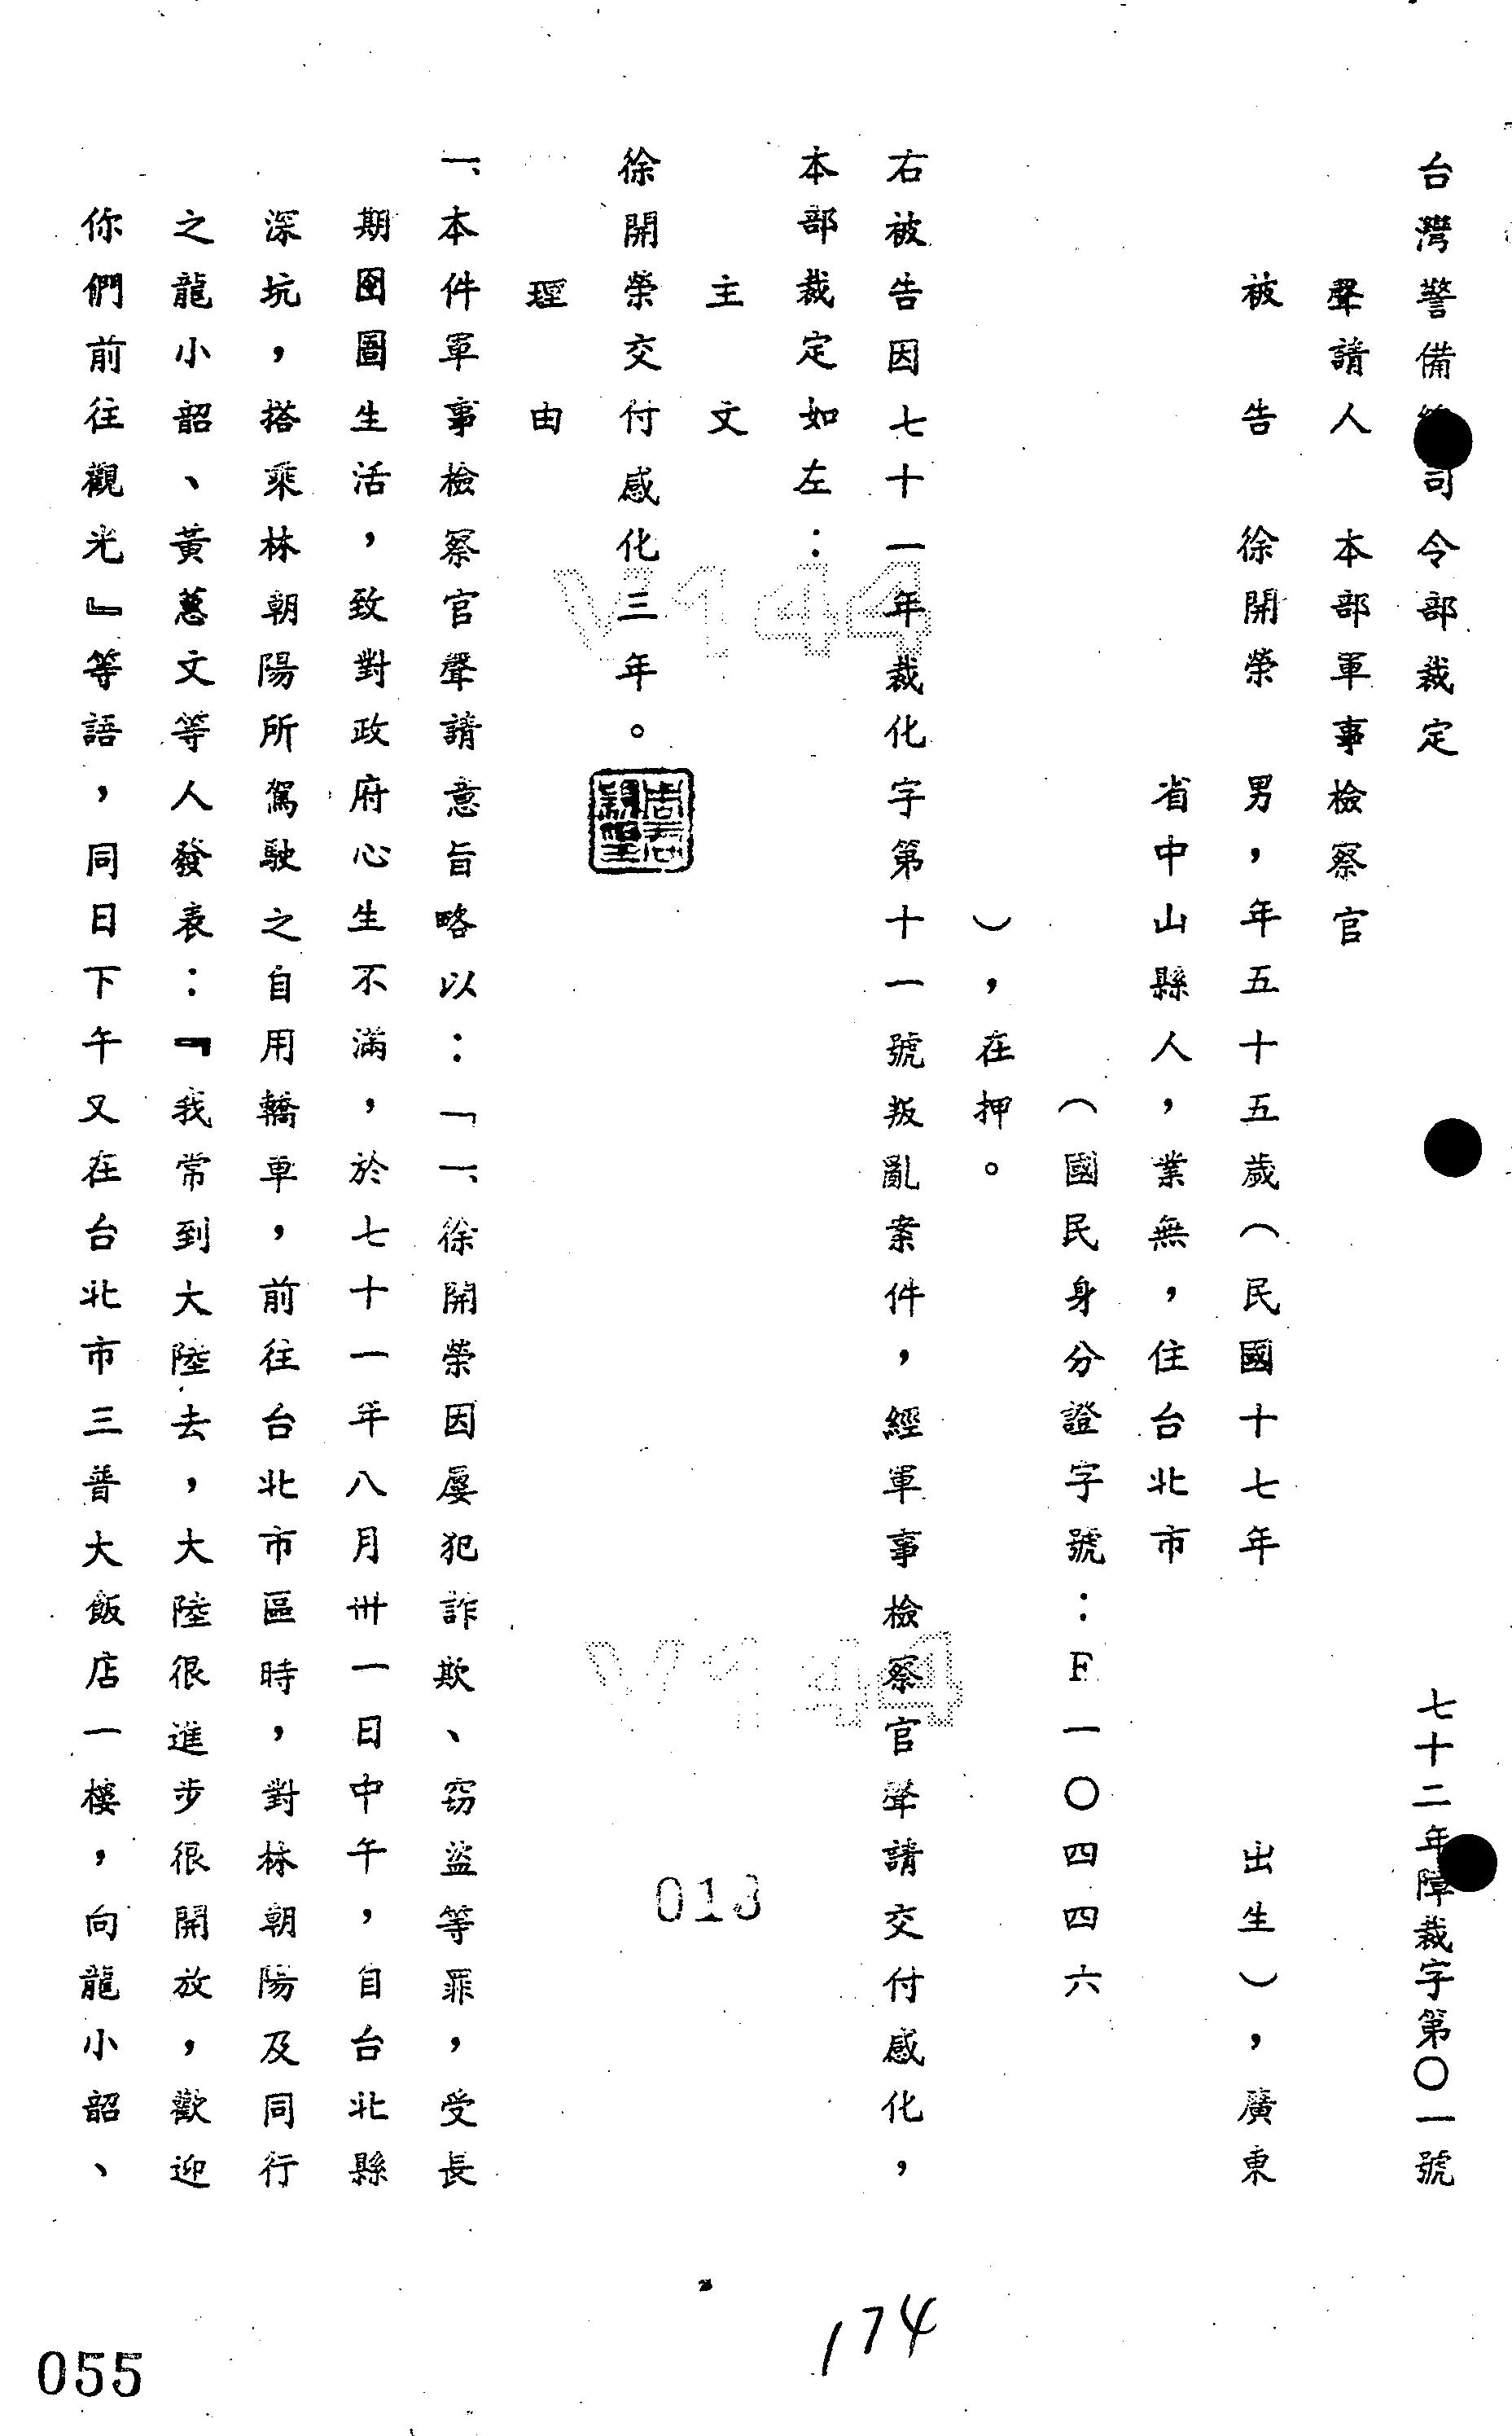 台灣警備司令部裁定
七十二年障裁字第〇一號
聲請人　本部軍事檢察官
被告　徐開榮　男，年五十五歲（民國十七年　出生），廣東
省中山縣人，業無，住台北市
（國民身分證字號：F一〇四四六
），在押。
右被告因七十一年裁化字第十一號叛亂案件，經軍事檢察官聲請交付感化，
本部裁定如左：
主文
徐開榮交付感化三年。
理由
一、本件軍事檢察官聲請意旨略以：「一、徐開榮因屢犯詐欺、竊盜等罪，受長
期囹圄生活，致對政府心生不滿，於七十一年八月卅一日中午，自台北縣
深坑，搭乘林朝陽所駕駛之自用轎車，前往台北市區時，對林朝陽及同行
之龍小韶、黃蕙文等人發表：『我常到大陸去，大陸很進步很開放，歡迎
你們前往觀光』等語，同日下午又在台北市三普大飯店一樓，向龍小韶、
V144
V144
013
174
055